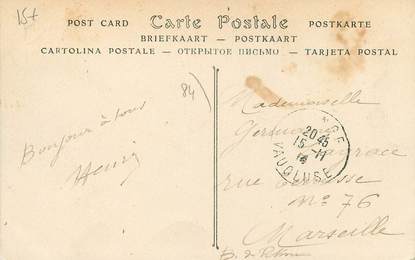 15+
POST CARD Carte Postale POSTKARTE
BRIEFKAART — POSTKAART
CARTOLINA POSTALE — ОТКРЫТОЕ ПИСЬМО — TARJETA POSTAL
84
Bonjour à tous
Henri
Mademoiselle
rue
N° 76
Marseille
B. d. Rhône
20 45
15 - 11
14
VAUCLUSE